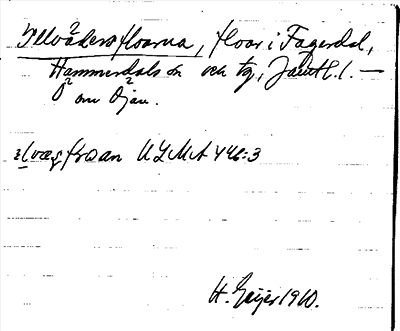 Illvädersfloarna, floar i Fagerdal,
Hammerdals sn och tg, Jämtl. l. —
Ö om Öjan.
ULMA 446:3
H. Geijer 1910.